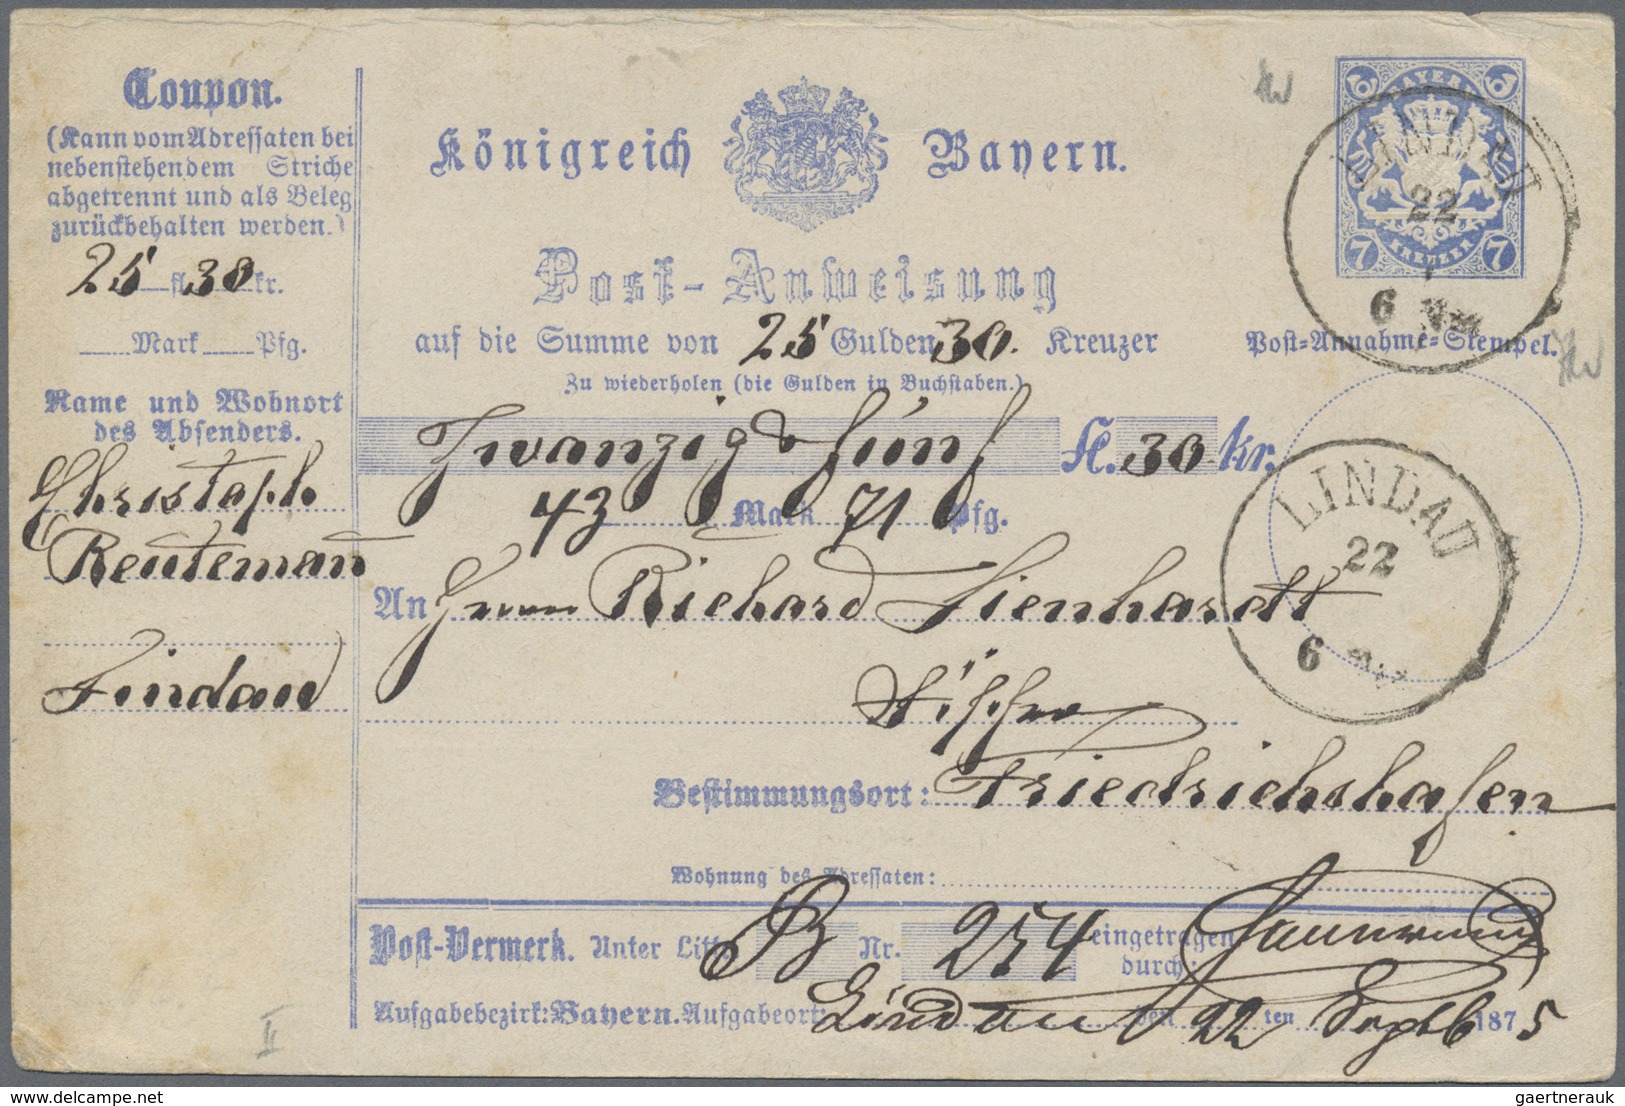 Coupon.
(Kann vom Adressaten bei
nebenstehendem Striche
abgetrennt und als Beleg
zurückbehalten werden.)
25 fl. 30 kr.
Mark Pfg.
Name und Wohnort
des Absenders.
Christoph
Reuteman̄
Lindau
Königreich Bayern.
Post-Anweisung
auf die Summe von 25 Gulden 30. Kreuzer
Zu wiederholen (die Gulden in Buchstaben.)
Zwanzig & fünf fl. 30 kr.
43 Mark 71 Pfg.
An Herrn Richard Lienhardt
Bestimmungsort: Friedrichshafen
Wohnung des Adressaten:
Post-Vermerk. Unter Litt. B Nr. 254 eingetragen
durch:
Aufgabebezirk: Bayern. Aufgabeort: Lindau den 22 ten Septb 1875
BAYERN
KREUZER
7 7
LINDAU
22
6 Nm
Post-Annahme-Stempel.
LINDAU
22
6 Nm
II
gaertnerauk